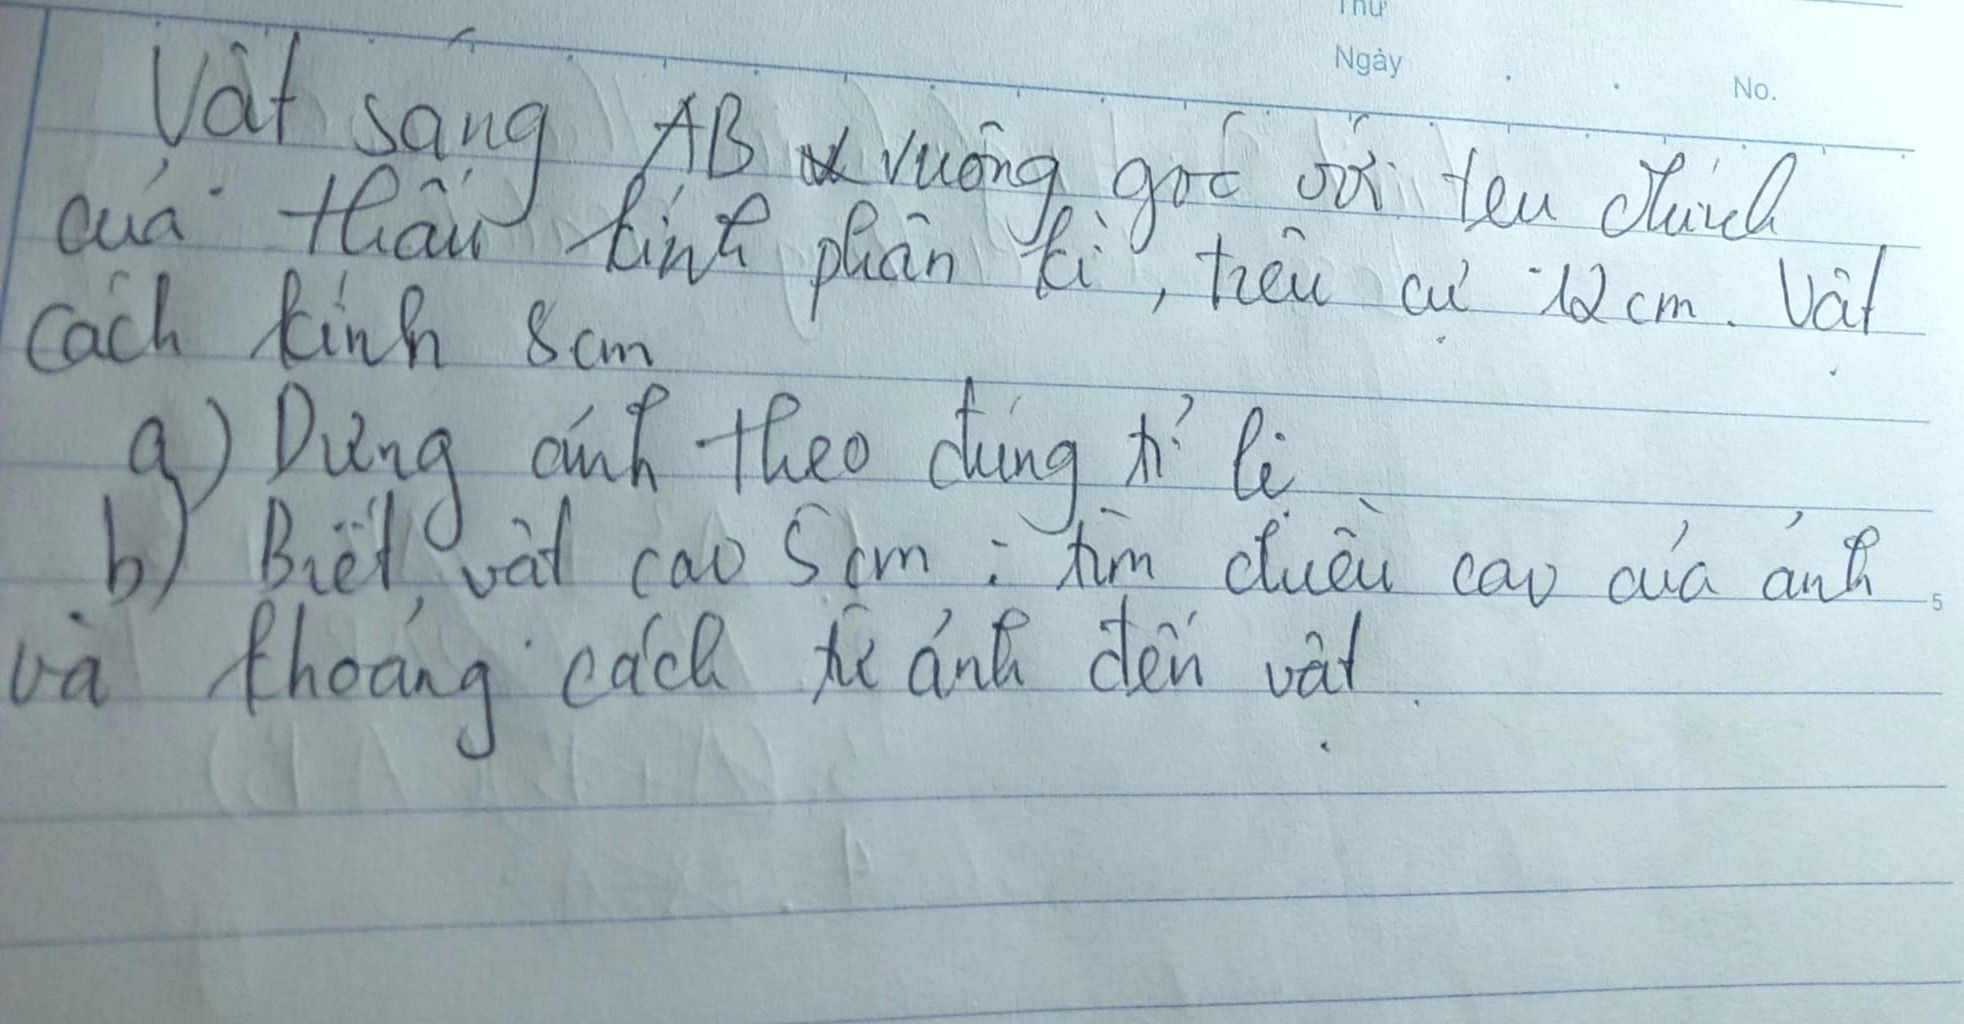 Thứ
Ngày . . No.
Vật sáng AB vuông góc với trục chính
của thấu kính phân kì, tiêu cự 12 cm. Vật
cách kính 8cm
a) Dựng ảnh theo đúng tỉ lệ
b) Biết vật cao 5cm : tìm chiều cao của ảnh
và khoảng cách từ ảnh đến vật.
5